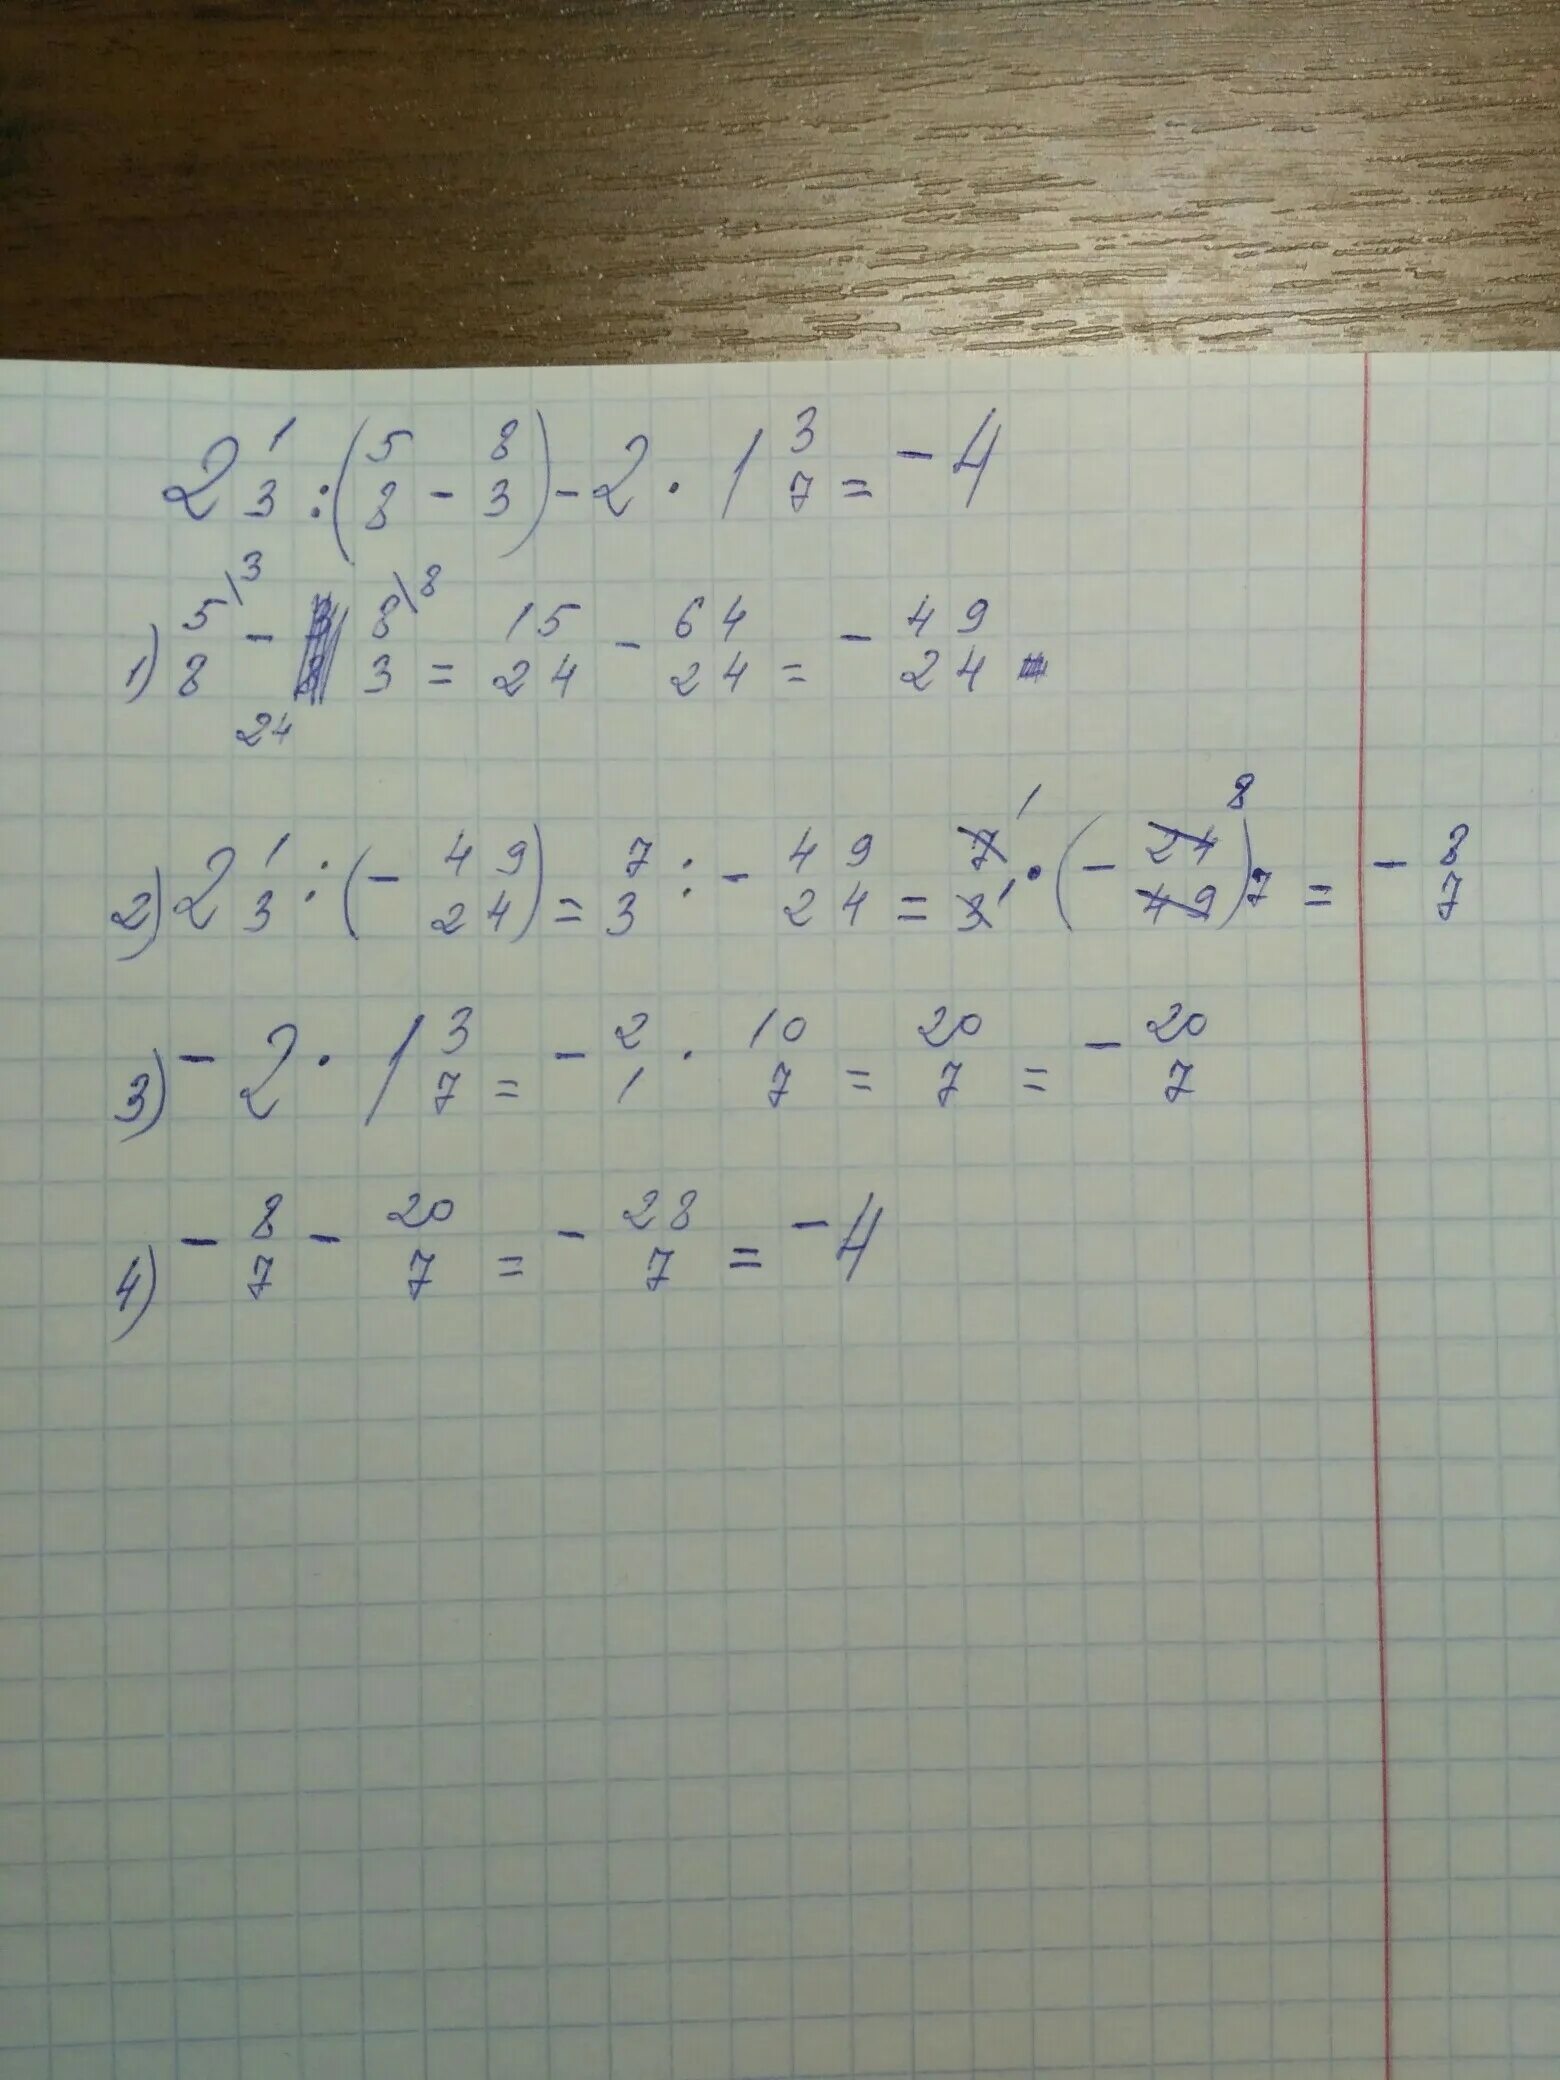 2 1/3 : (5/8 - 8/3) - 2 · 1 3/7 = - 4
1) 5/8 \3 - 8/3 \8 = 15/24 - 64/24 = - 49/24
24
2) 2 1/3 : (- 49/24) = 7/3 : - 49/24 = 7/3 1 1 · (- 24/49) 8 7 = - 8/7
3) - 2 · 1 3/7 = - 2/1 · 10/7 = 20/7 = - 20/7
4) - 8/7 - 20/7 = - 28/7 = - 4